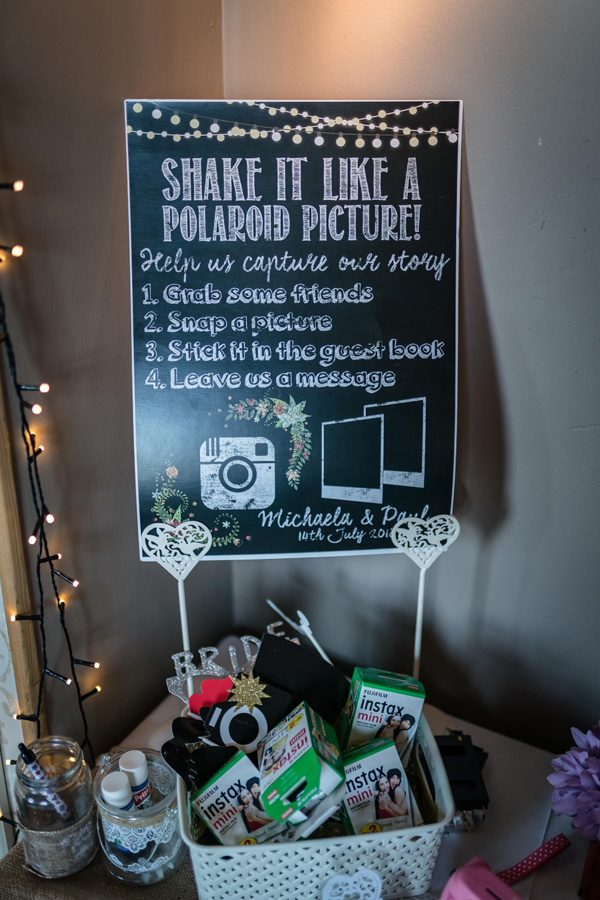 SHAKE IT LIKE A
POLAROID PICTURE!
Help us capture our story
1. Grab some friends
2. Snap a picture
3. Stick it in the guest book
4. Leave us a message
Michaela & Paul
14th July
BRIDE
FUJIFILM
instax
mini
instax
mini
instax
mini
instax
mini